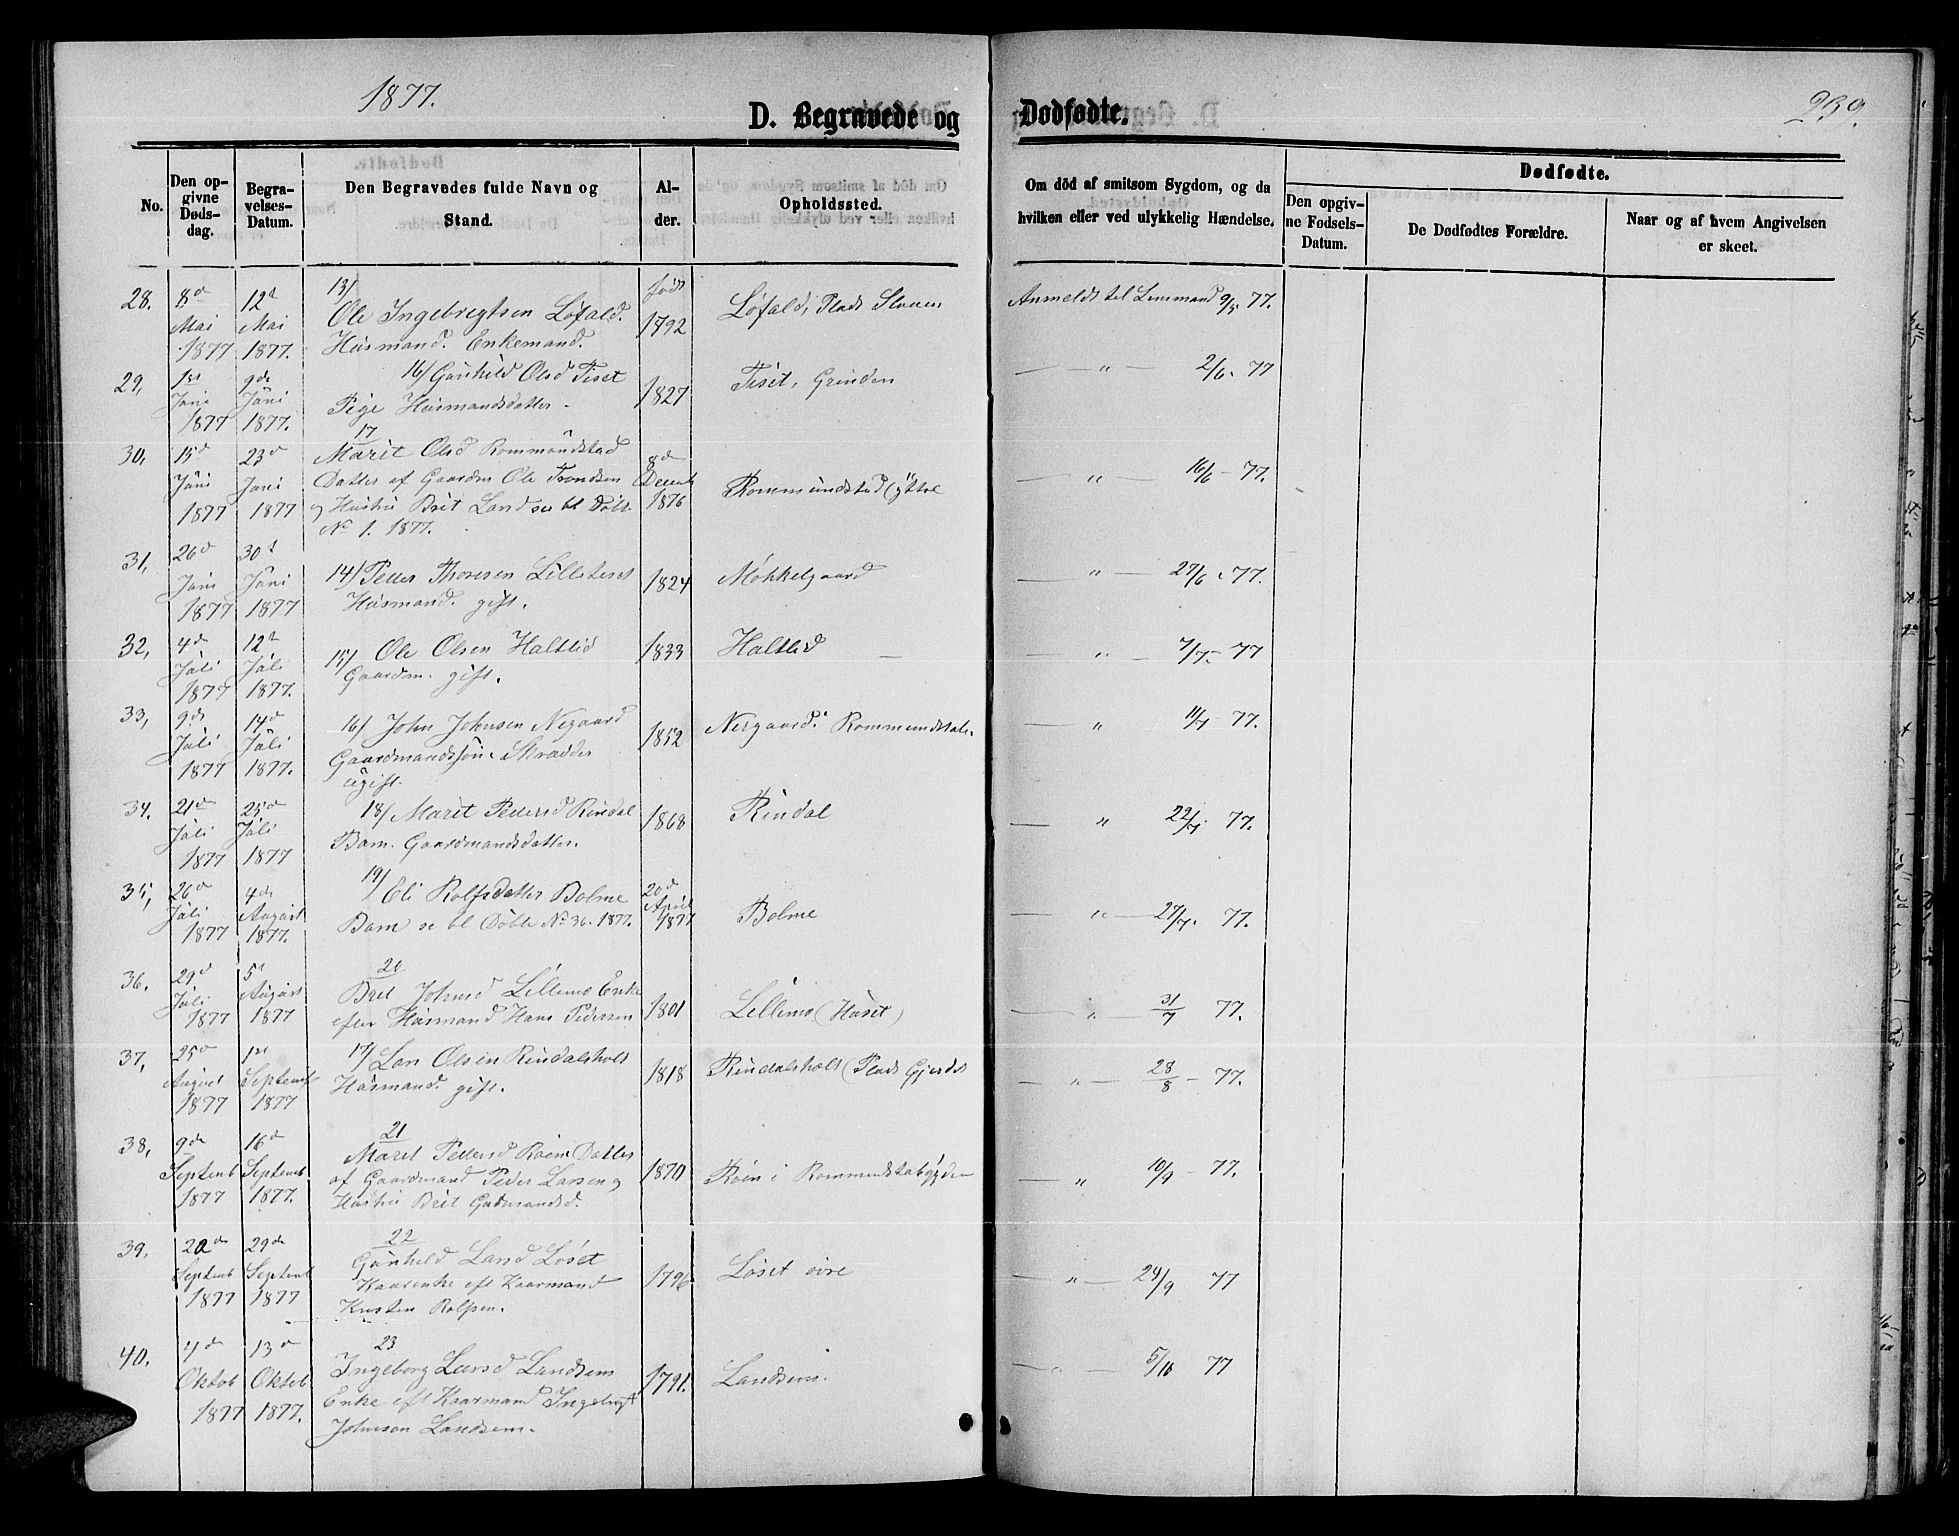 1877.
239.
D. Begravede og Dødfødte.
No.
Den opgivne Dødsdag.
Begravelses-Datum.
Den Begravedes fulde Navn og Stand.
Alder.
Opholdssted.
Om död af smitsom Sygdom, og da hvilken eller ved ulykkelig Hændelse.
Dødfødte.
Den opgivne Fødsels-Datum.
De Dødfødtes Forældre.
Naar og af hvem Angivelsen er skeet.
28. 8d Mai 1877 12t Mai 1877.
13/
Ole Ingebregtsen Løfald.
Husmand. Enkemand.
født 1792
Løfald, Plads
Anmeldt til Lensmand 9/5 77.
29, 1st Juni 1877 9de Juni 1877.
16/ Gunhild Olsd Tiset
Pige Husmandsdatter.
1827
Tiset, Grinden
— " — 2/6. 77
30, 15d Juni 1877 23d Juni 1877
17
Marit Olsd Rommundstad
Datter af Gaardm Ole Trondsen
og Hustru Brit Landsem bl Döbt
No 1. 1877.
8d Decemb 1876
Rommundstad ÿttre
— " — 16/6 - 77.
31, 26d Juni 1877 30t Juni 1877
14/ Peder Thoresen Lilleteret
Husmand. gift.
1824
Møkkelgaard
— " — 27/6. 77.
32, 4de Juli 1877 12t Juli 1877.
15/ Ole Olsen Haltlid
Gaardm. gift.
1833
Haltlid —
— " 7/7 - 77
33, 9de Juli 1877 14d Juli 1877.
16/ John Johnsen Negaard
Gaardmandssøn. Skrædder
ugift.
1852
Nergaard.
— " 11/7 - 77.
34. 21d Juli 1877 25d Juli 1877
18/ Marit Pedersd Rindal
Barn. Gaardmandsdatter.
1868
Rindal
— " 22/7. 77.
35, 26d Juli 1877 4de August 1877.
19/ Eli Rolfsdatter Bolme
Barn se bl Döbte No 36. 1877.
20d April 1877
Bolme
— " — 27/7. 77.
36. 29d Juli 1877 5t August 1877
20
Brit Johnsd Lillemo Enke
efter Husmand Hans Pedersen
1801
Lillemo (Huset)
— " — 31/7 77.
37. 25d August 1877 1st Septemb 1877
17/ Lars Olsen Rindalsholt
Husmand. gift.
1818
Rindalsholt (Plads Gjerdet
— " — 28/8 - 77.
38, 9de Septemb 1877 16d Septemb 1877.
21
Marit Pedersd Röen Datter
af Gaardmand Peder Larsen og
Hustru Brit Gudmundsd.
1870
Röen i Rommundstabygden
— " 10/9 - 77.
39, 20de Septemb 1877 29de Septemb 1877
22
Gunhild Larsd Løset
Kaarenke eft Kaarmand
Kristen Rolfsen.
1796
Løset övre
— " — 24/9 77
40. 4de Oktob 1877 13d Oktob 1877.
23
Ingeborg Larsd Landsem
Enke eft Kaarmand Ingebrigt
Johnsen Landsem.
1791.
Landsem.
— " — 5/10 77